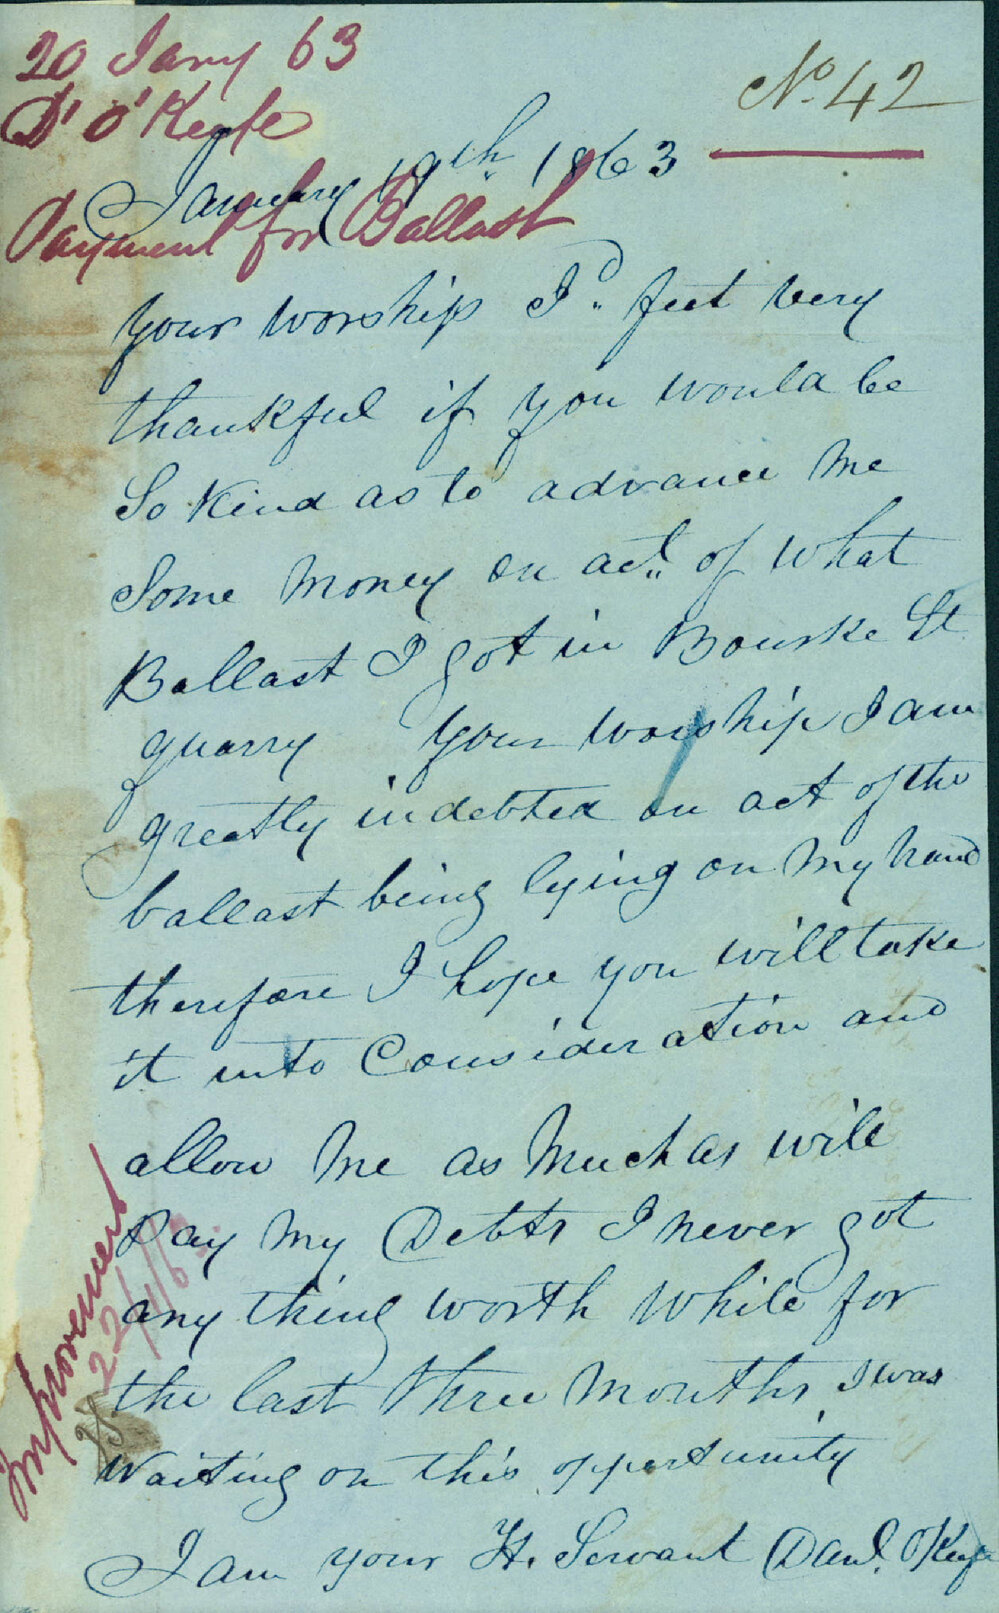 20 Jany 63
No. 42
D' O'Keefe
January 19th. 1863
Payment for Ballast
your worship I'd feel very
thankful if you would be
So Kind as to advance me
Some money on act. of what
Ballast I got in Bourke St
quarry your worship I am
greatly indebted on act of the
ballast being lying on my hand
therefore I hope you will take
it into Consideration and
allow me as much as will
Pay my Debts I never got
any thing worth while for
the last three months, I was
waiting on this opportunity
I am your H. Servant Danl. O'Keefe
Improvement
22/1/63